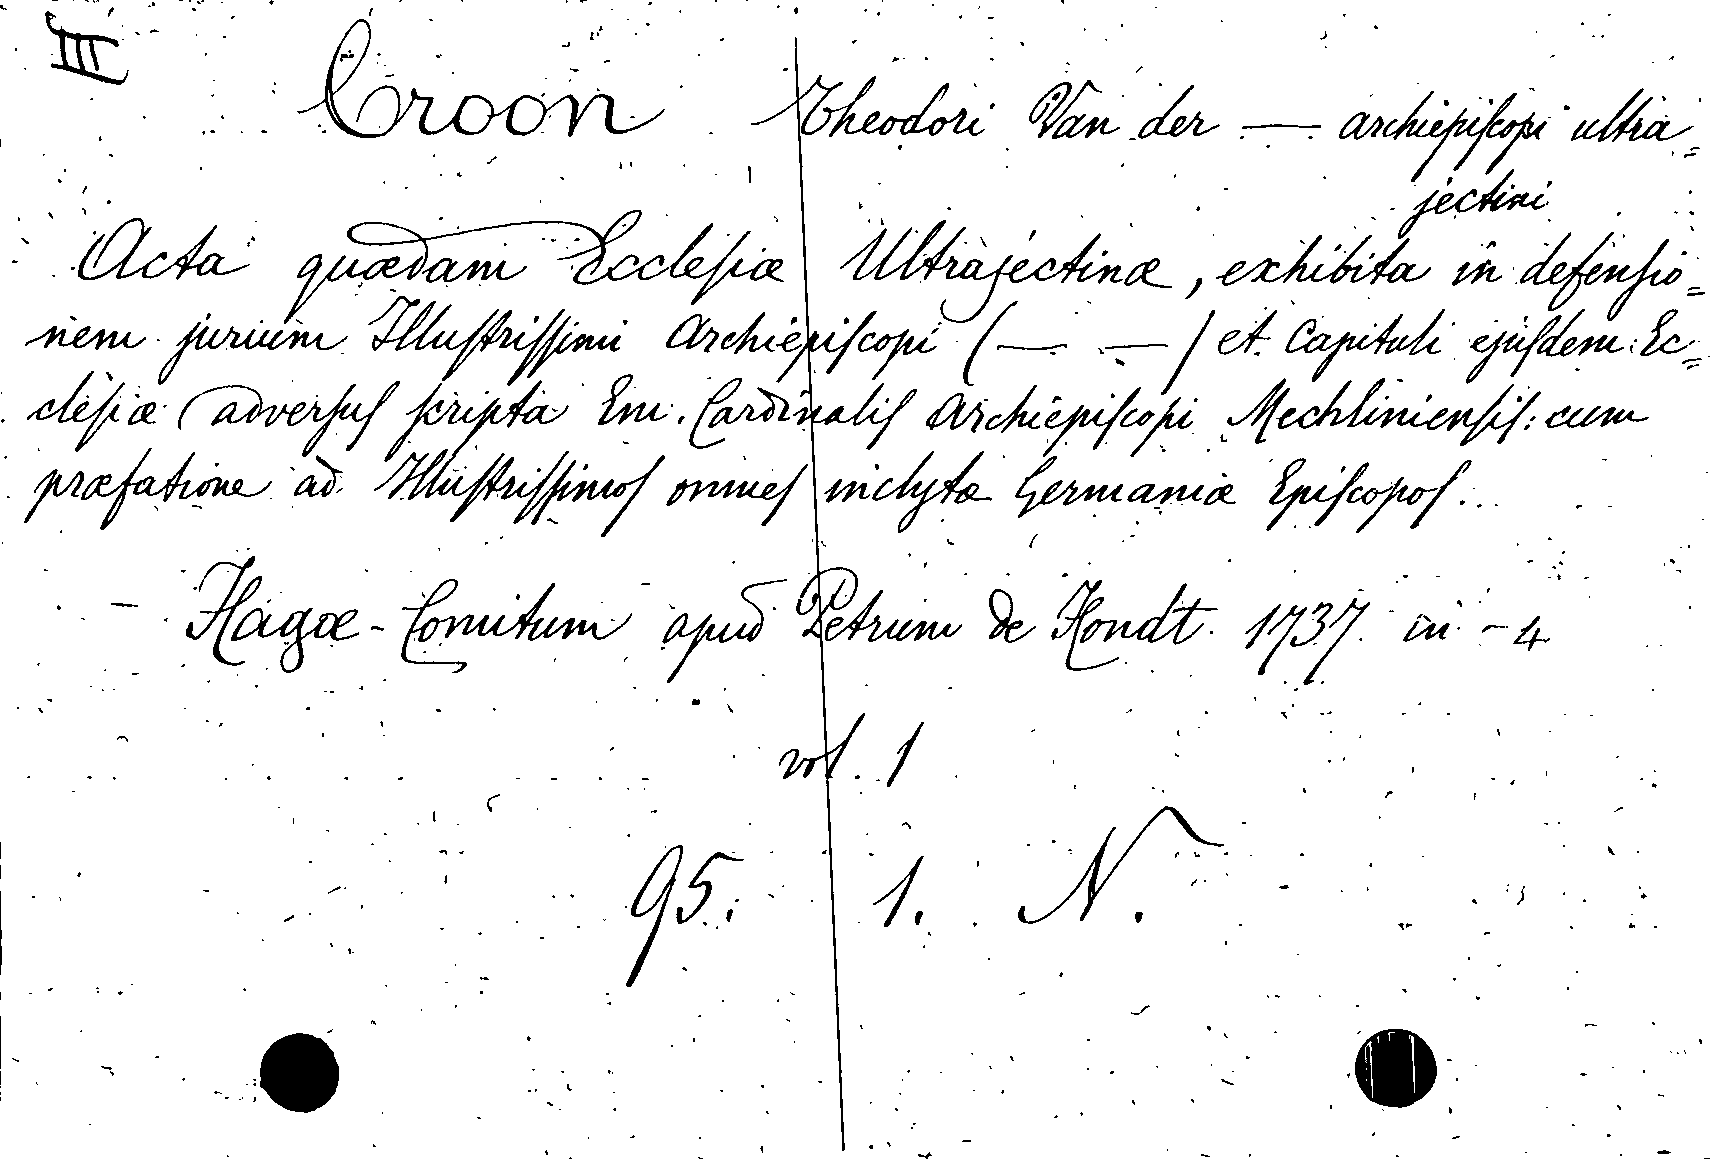 III
Croon Theodori Van der — archiepiscopi ultra=
jectini
Acta quædam Ecclesiæ Ultrajectinæ, exhibita in defensio=
nem jurium Illustrissimi Archiepiscopi (— —) et Capituli ejusdem Ec=
clesiæ adversus scripta Em. Cardinalis Archiepiscopi Mechliniensis: cum
præfatione ad Illustrissimos omnes inclytæ Germaniæ Episcopos.
- Hagæ-Comitum apud Petrum de Hondt. 1737. in-4
vol. 1
95. 1. N.